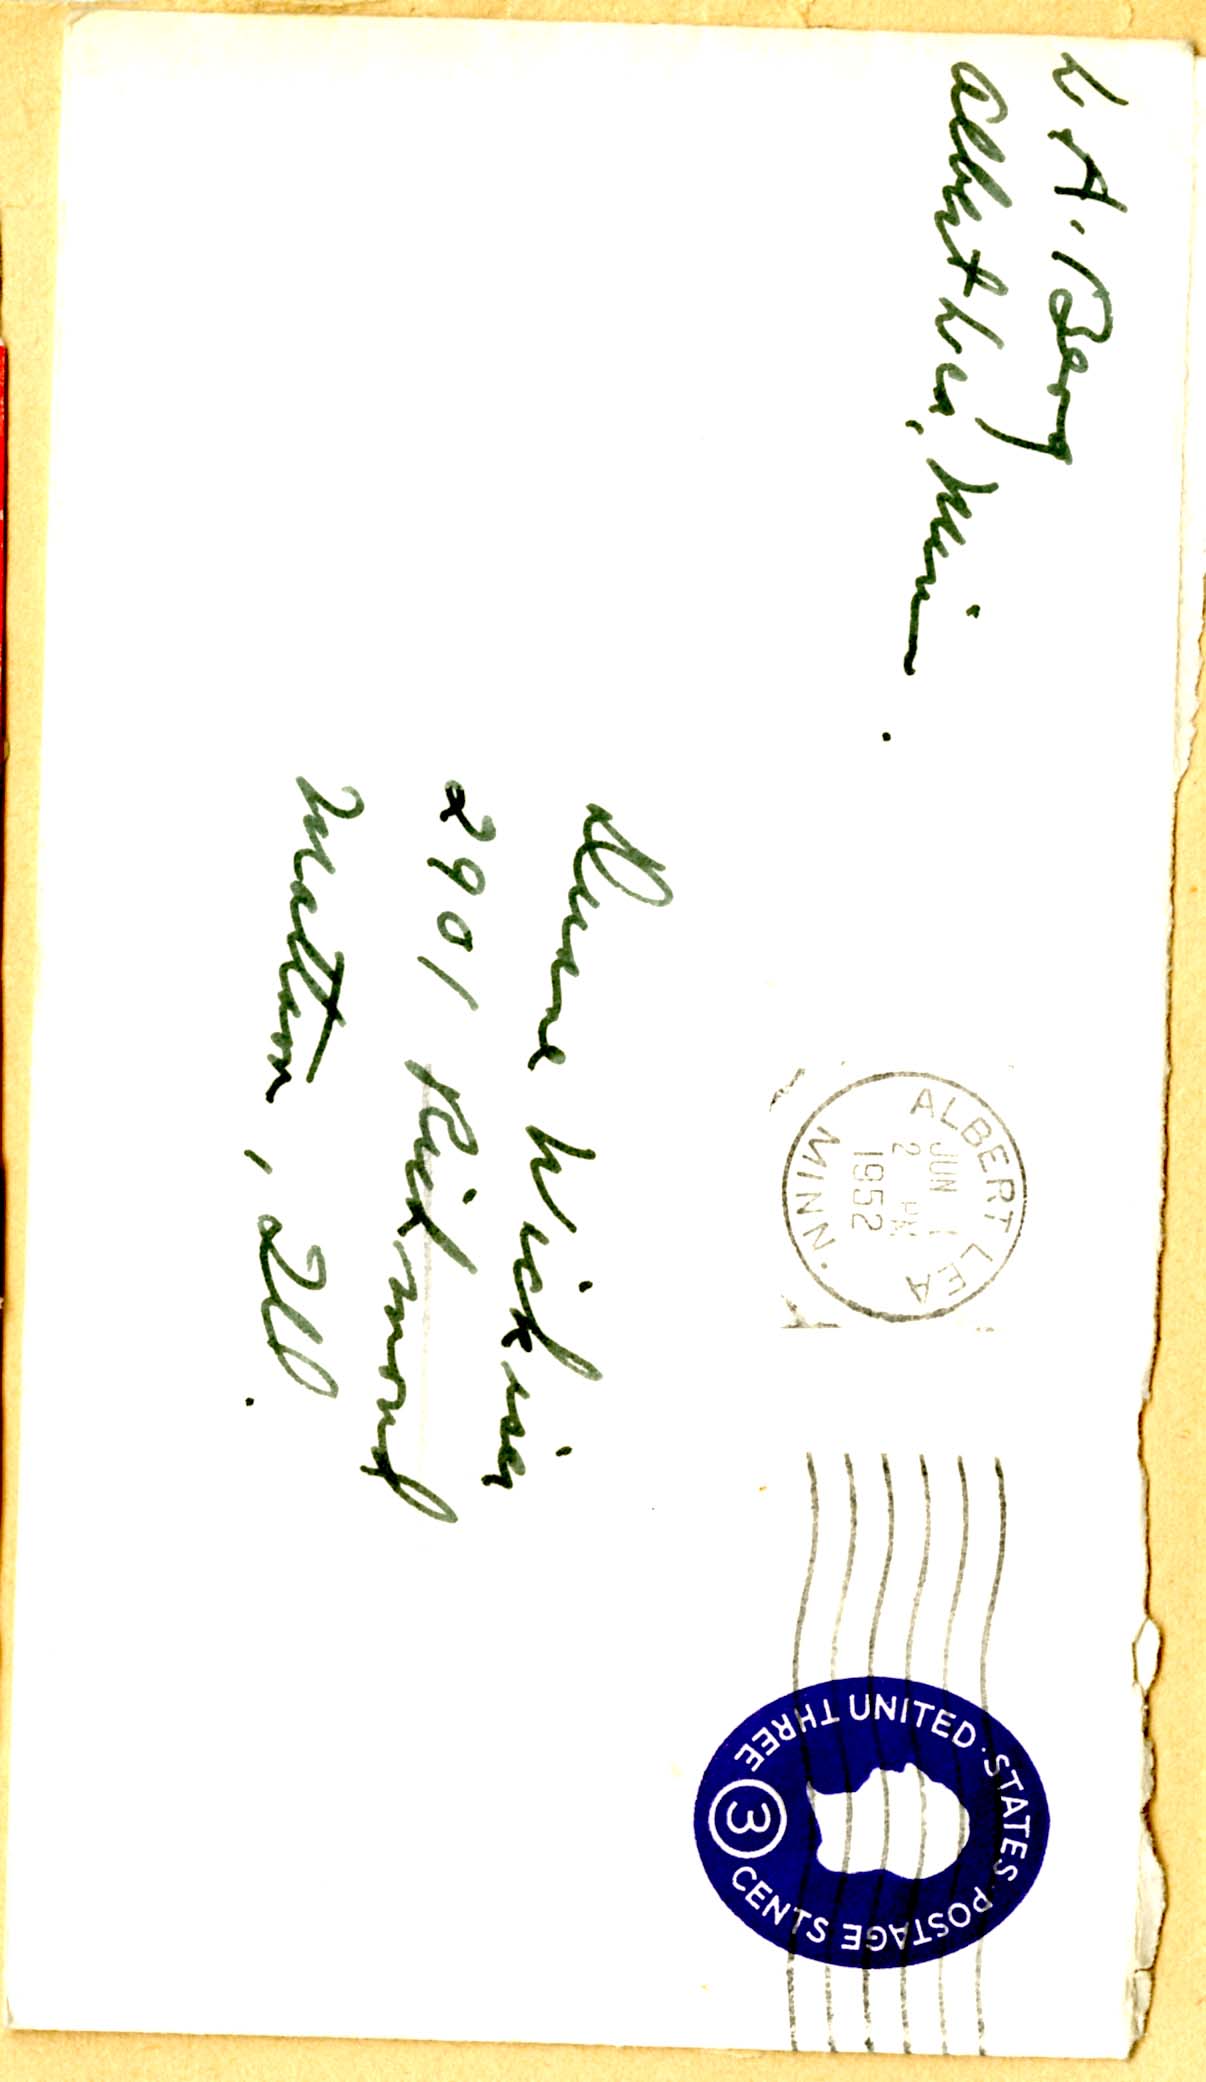 L. A. Berg
Albert Lea, Minn.
ALBERT LEA
JUN 1
2 PM
1952
MINN.
UNITED · STATES · POSTAGE
THREE 3 CENTS
Duane Wickiser
2901 Richmond
Mattoon, Ill.